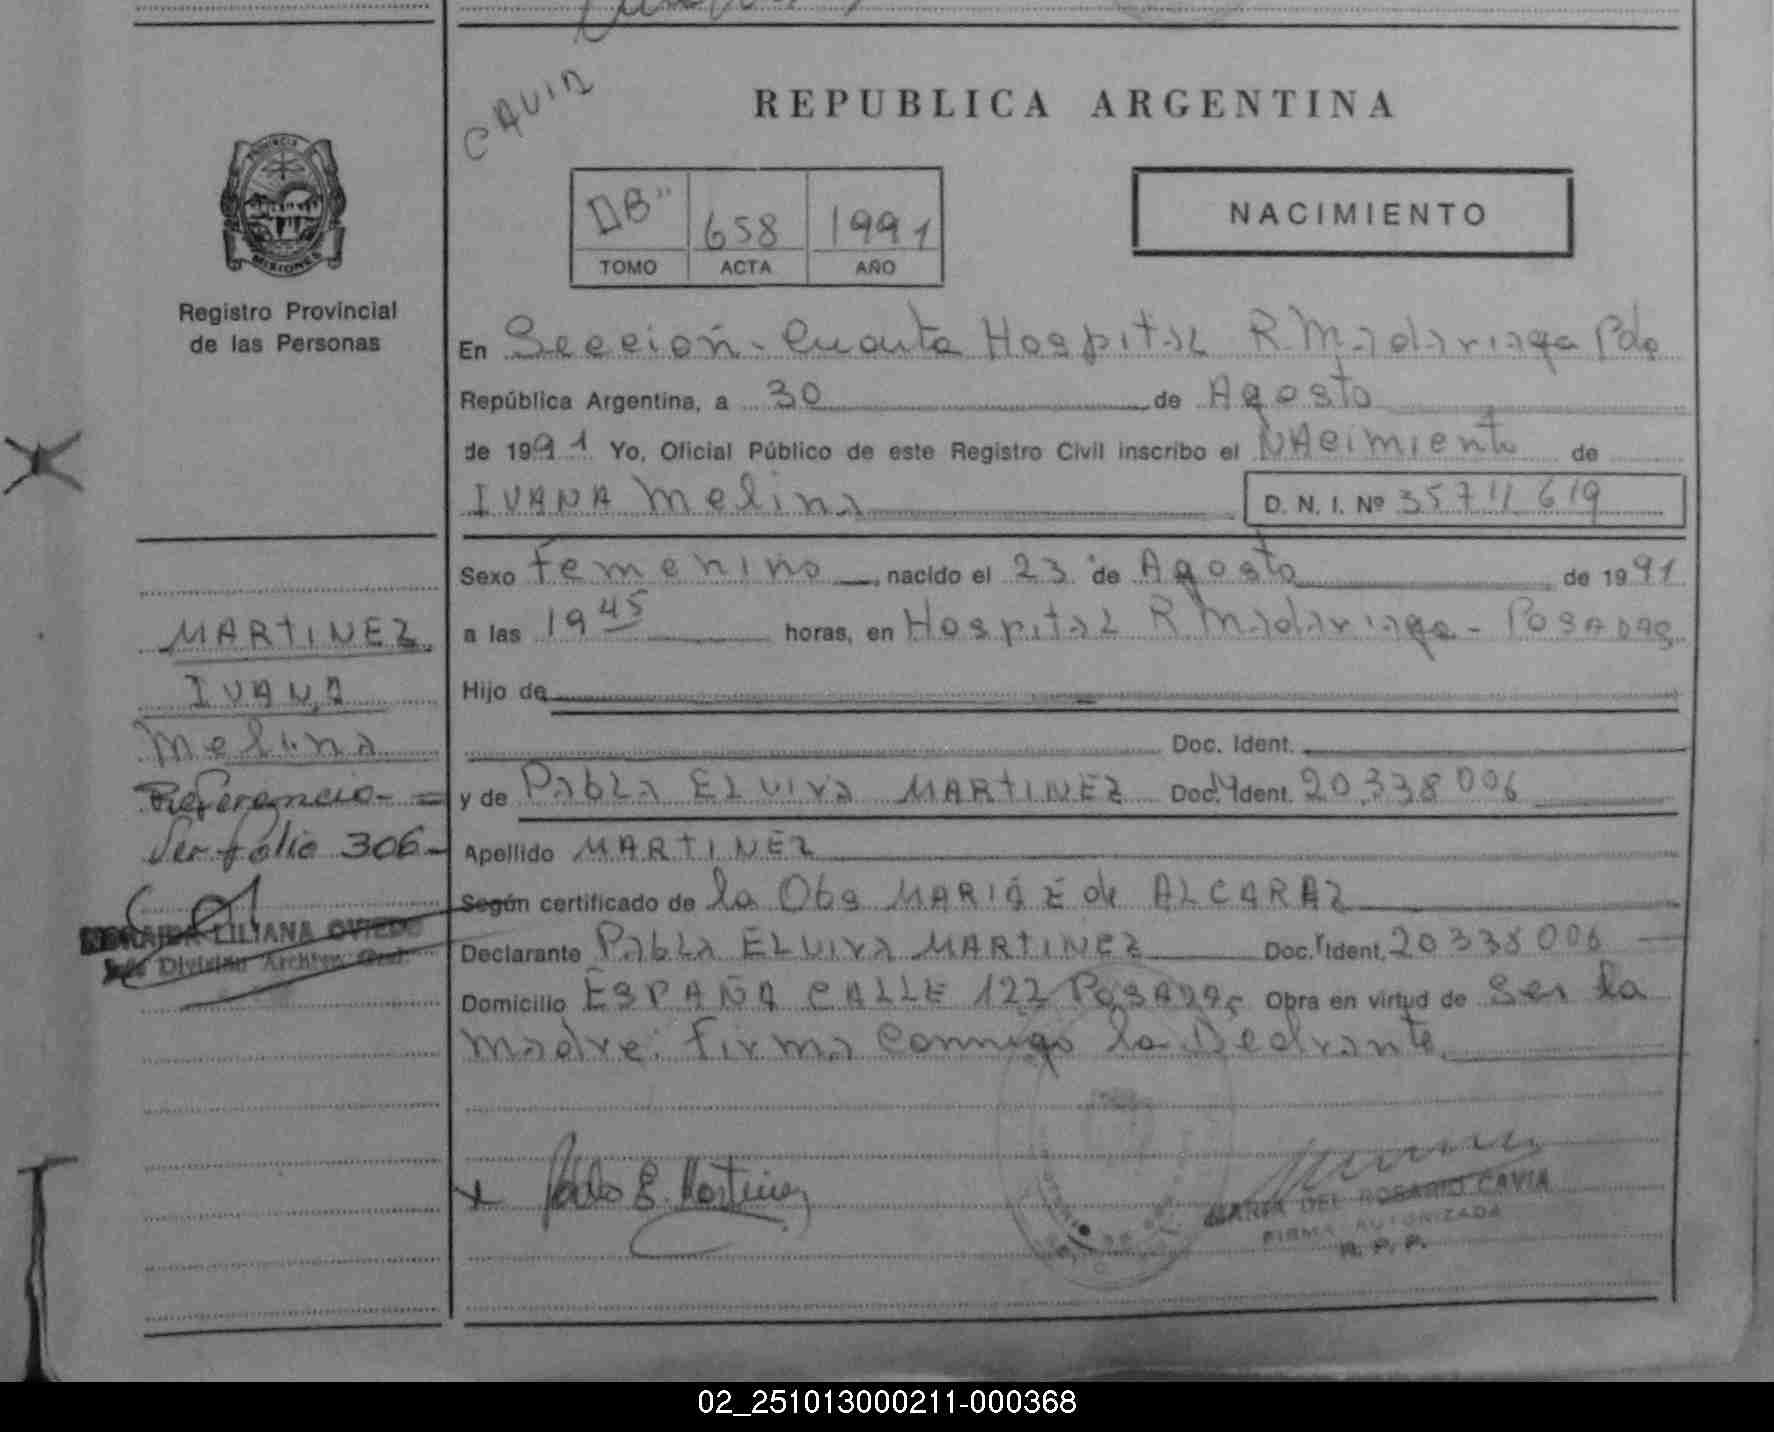 CAVIA
REPUBLICA ARGENTINA
658 1991
TOMO ACTA AÑO
NACIMIENTO
PROVINCIA
MISIONES
Registro Provincial
de las Personas
En Sección Cuarta Hospital R. Madariaga Pdas
República Argentina, a 30 de Agosto
de 1991 Yo, Oficial Público de este Registro Civil inscribo el NAcimiento de
IVANA Melina D. N. I. Nº 35711619
Sexo Femenino, nacido el 23 de Agosto de 1991
a las 19 45 horas, en Hospital R. Madariaga - POSADAS
Hijo de
Doc. Ident.
y de PABLA ELVIRA MARTINEZ Doc. Ident. 20.338006
Apellido MARTINEZ
Según certificado de la Obs MARIA E de ALCARAZ
Declarante PABLA ELVIRA MARTINEZ Doc. Ident. 20338006
Domicilio ESPAÑA CALLE 122 POSADAS Obra en virtud de Ser la
Madre. Firma Conmigo la Declrante
MARTINEZ,
IVANA
Melina
Referencia- =
Ver folio 306-
LILIANA OVIEDO
Jefe División Archivo Gral.
x Pabla E. Martinez
MARIA DEL ROSARIO CAVIA
FIRMA AUTORIZADA
R. P. P.
02_251013000211-000368